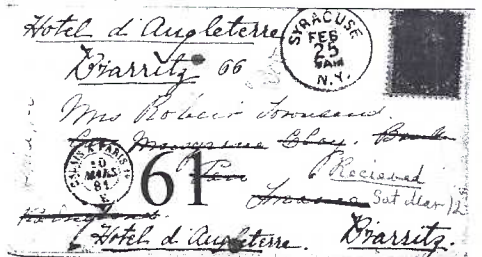 Hotel d'Angleterre
Biarritz 66
SYRACUSE
FEB
25
N.Y.
Mrs Robert Townsend.
Musgrave Clay.
Pau
10
MARS
81
E
61
Recieved
France Sat Mar 12
Hotel d'Angleterre. Biarritz.